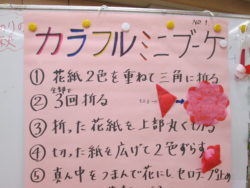 NO.1
カラフルミニブーケ
① 花紙2色を重ねて三角に折る
② 3回折る
③ 折った花紙を上部丸く切る
④ 切った紙を広げて2色ずらす
⑤ 真ん中をつまんで花にしセロテープ止め